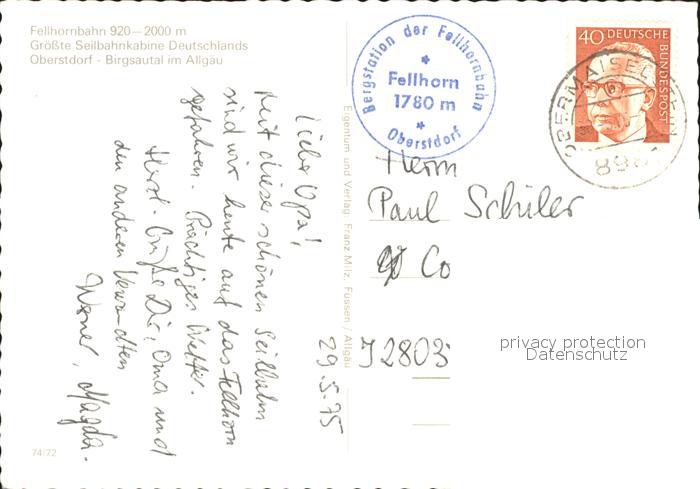 Fellhornbahn 920—2000 m
Größte Seilbahnkabine Deutschlands
Oberstdorf - Birgsautal im Allgäu
Lieber Opa!,
Mit dieser schönen Seilbahn
sind wir heute auf das Fellhorn
gefahren. Prächtiges Wetter.
Herzl. Grüße Dir, Oma und
den anderen Verwandten
Werner, Magda.
29.5.75
74/72
Eigentum und Verlag: Franz Milz, Füssen / Allgäu
Bergstation der Fellhornbahn
Fellhorn
1780 m
Oberstdorf
40 DEUTSCHE
BUNDESPOST
OBERMAISELSTEIN
Herrn
Paul Schüler
Co
J2803
privacy protection
Datenschutz